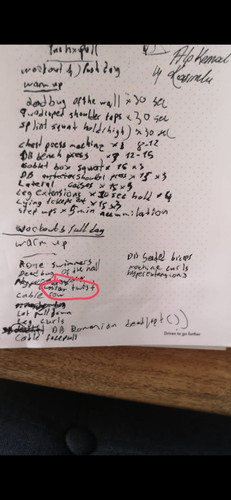 workout 4) Push day
warm up
deadbug of the wall x 30 sec
quadruped shoulder taps x 30 sec
split squat hold (high) x 30 sec
chest press machine x3 8-12
DB bench press x3 12-15
Goblet box squat x 15 x3
DB shoulder press x 15 x3
Lateral raises x 15 x3
Leg extensions x 30 sec hold x4
Lying x 15 x3
step ups x 5 min accumilation
workout 5 full day
warm up
Prone swimmers
Deadbug of the wall
twist
cable row
Lat pull down
Leg curls
DB Romanian deadlift
cable facepull
DB Seated biceps
machine curls
Hyperextensions
Driven to go further